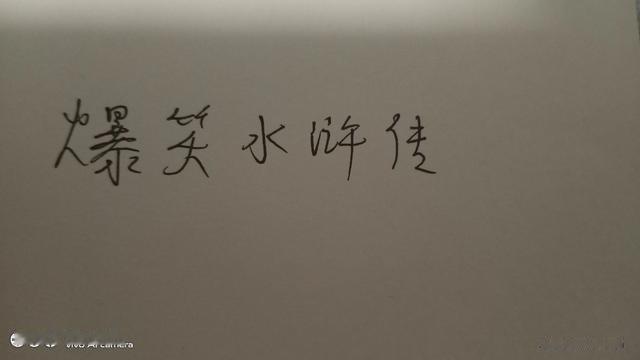 爆笑水浒传
vivo AI camera